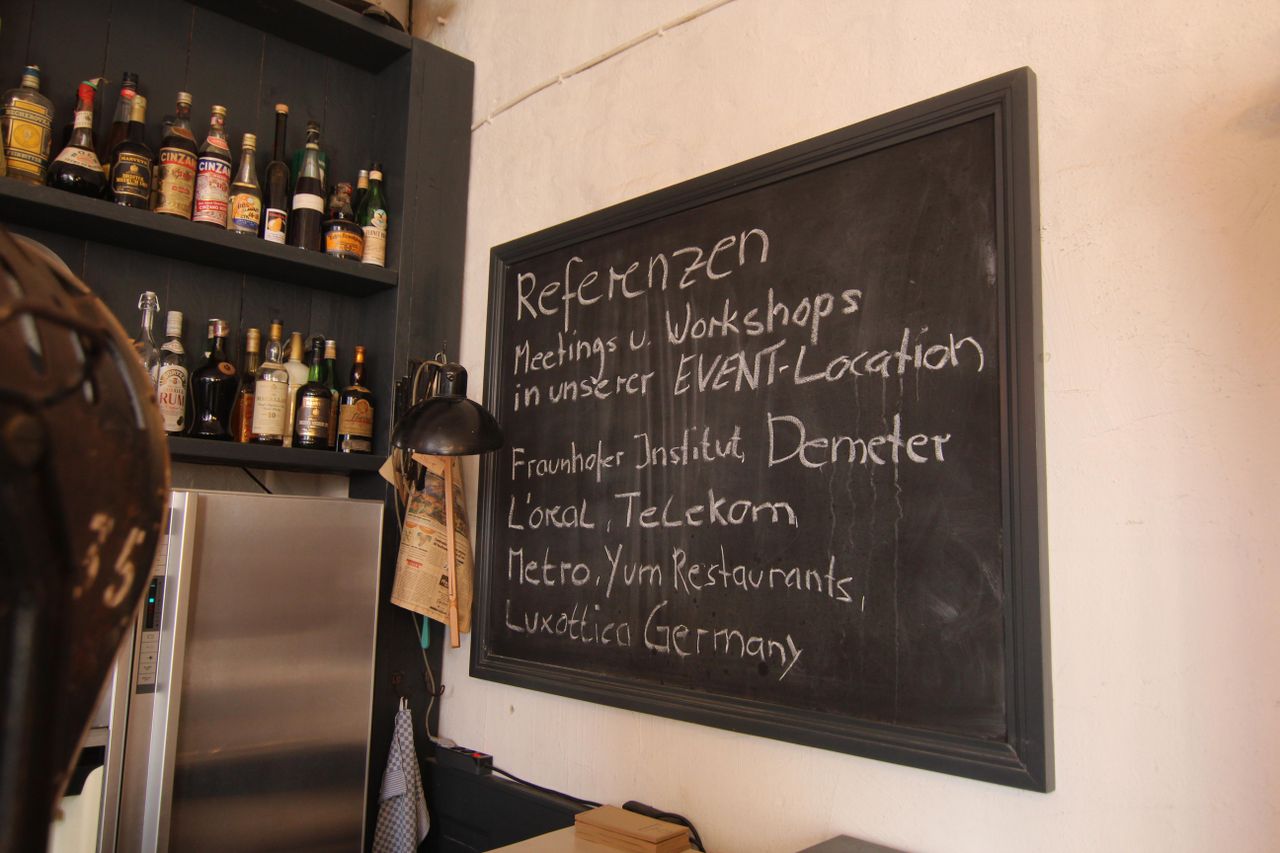 CINZANO
CINZANO
RUM
35
Referenzen
Meetings u. Workshops
in unserer EVENT-Location
Fraunhofer Institut, Demeter
L'oreal, Telekom,
Metro, Yum Restaurants,
Luxottica Germany